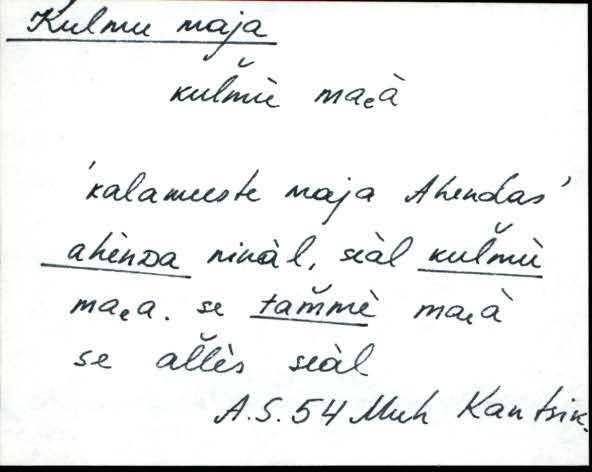 Kulmu maja
kul̆mù mae̬à
'kalameeste maja Ahendas'
ahènDa ninàl, siàl kul̆mù
mae̬a. se tam̆mè mae̬à
se al̆lès siàl
A.S. 54 Muh Kantsik.